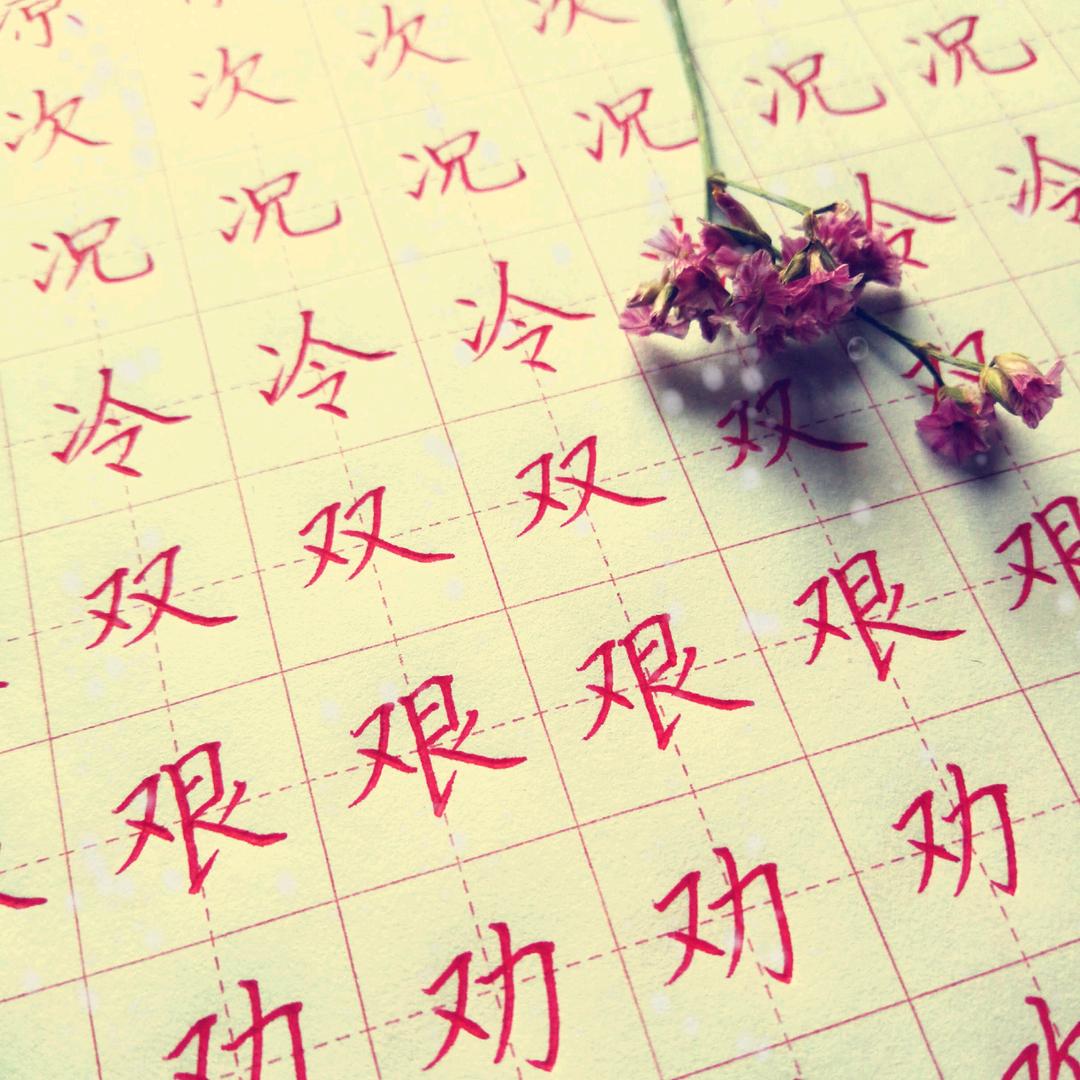 次次次次
况况况况况况
冷冷冷冷冷
双双双双双
艰艰艰艰艰
劝劝劝劝